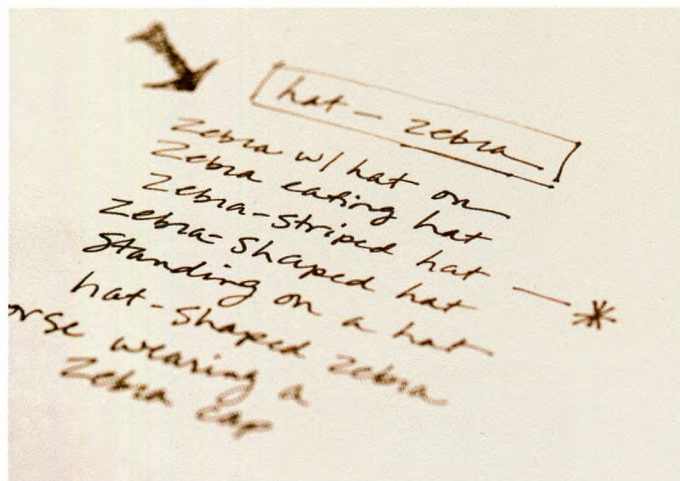 hat - zebra
zebra w/ hat on
Zebra eating hat
Zebra-striped hat — *
Zebra-shaped hat
Standing on a hat
hat-shaped zebra
orse wearing a
zebra cap